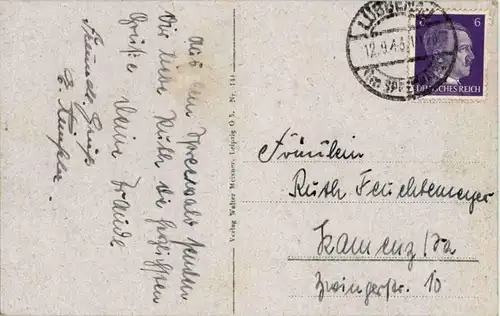 Aus dem Spreewald senden
Dir liebe Ruth die herzlichsten
Grüße Deine Traude
Freundl. Grüße
E.
Verlag Walter Heinze, Leipzig O 5, Nr.
LÜBBENAU
12.9.43
(Der SPREEWALD)
6
DEUTSCHES REICH
Fräulein
Ruth Feuchtemeyer
Kamenz/Sa
Zwingerstr. 10